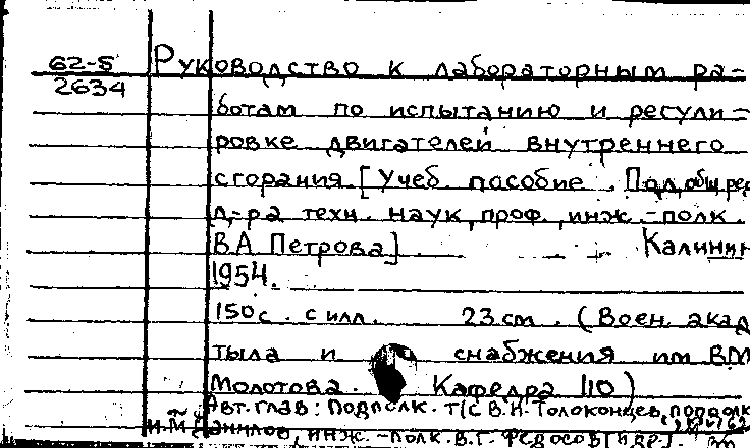 62-5
2634
Руководство к лабораторным ра=
ботам по испытанию и регули=
ровке двигателей внутреннего
сгорания. [Учеб. пособие. Под общ ред
д-ра техн. наук, проф., инж.-полк.
В А Петрова] Калинин
1954.
150 с. с илл. 23 см. (Воен. акад
тыла и снабжения им В М
Молотова. Кафедра 110)
Авт. глав: подполк. В. И. Толоконцев, подполк
И. М. Данилов, инж.-полк. В. Г. Федосов [и др].